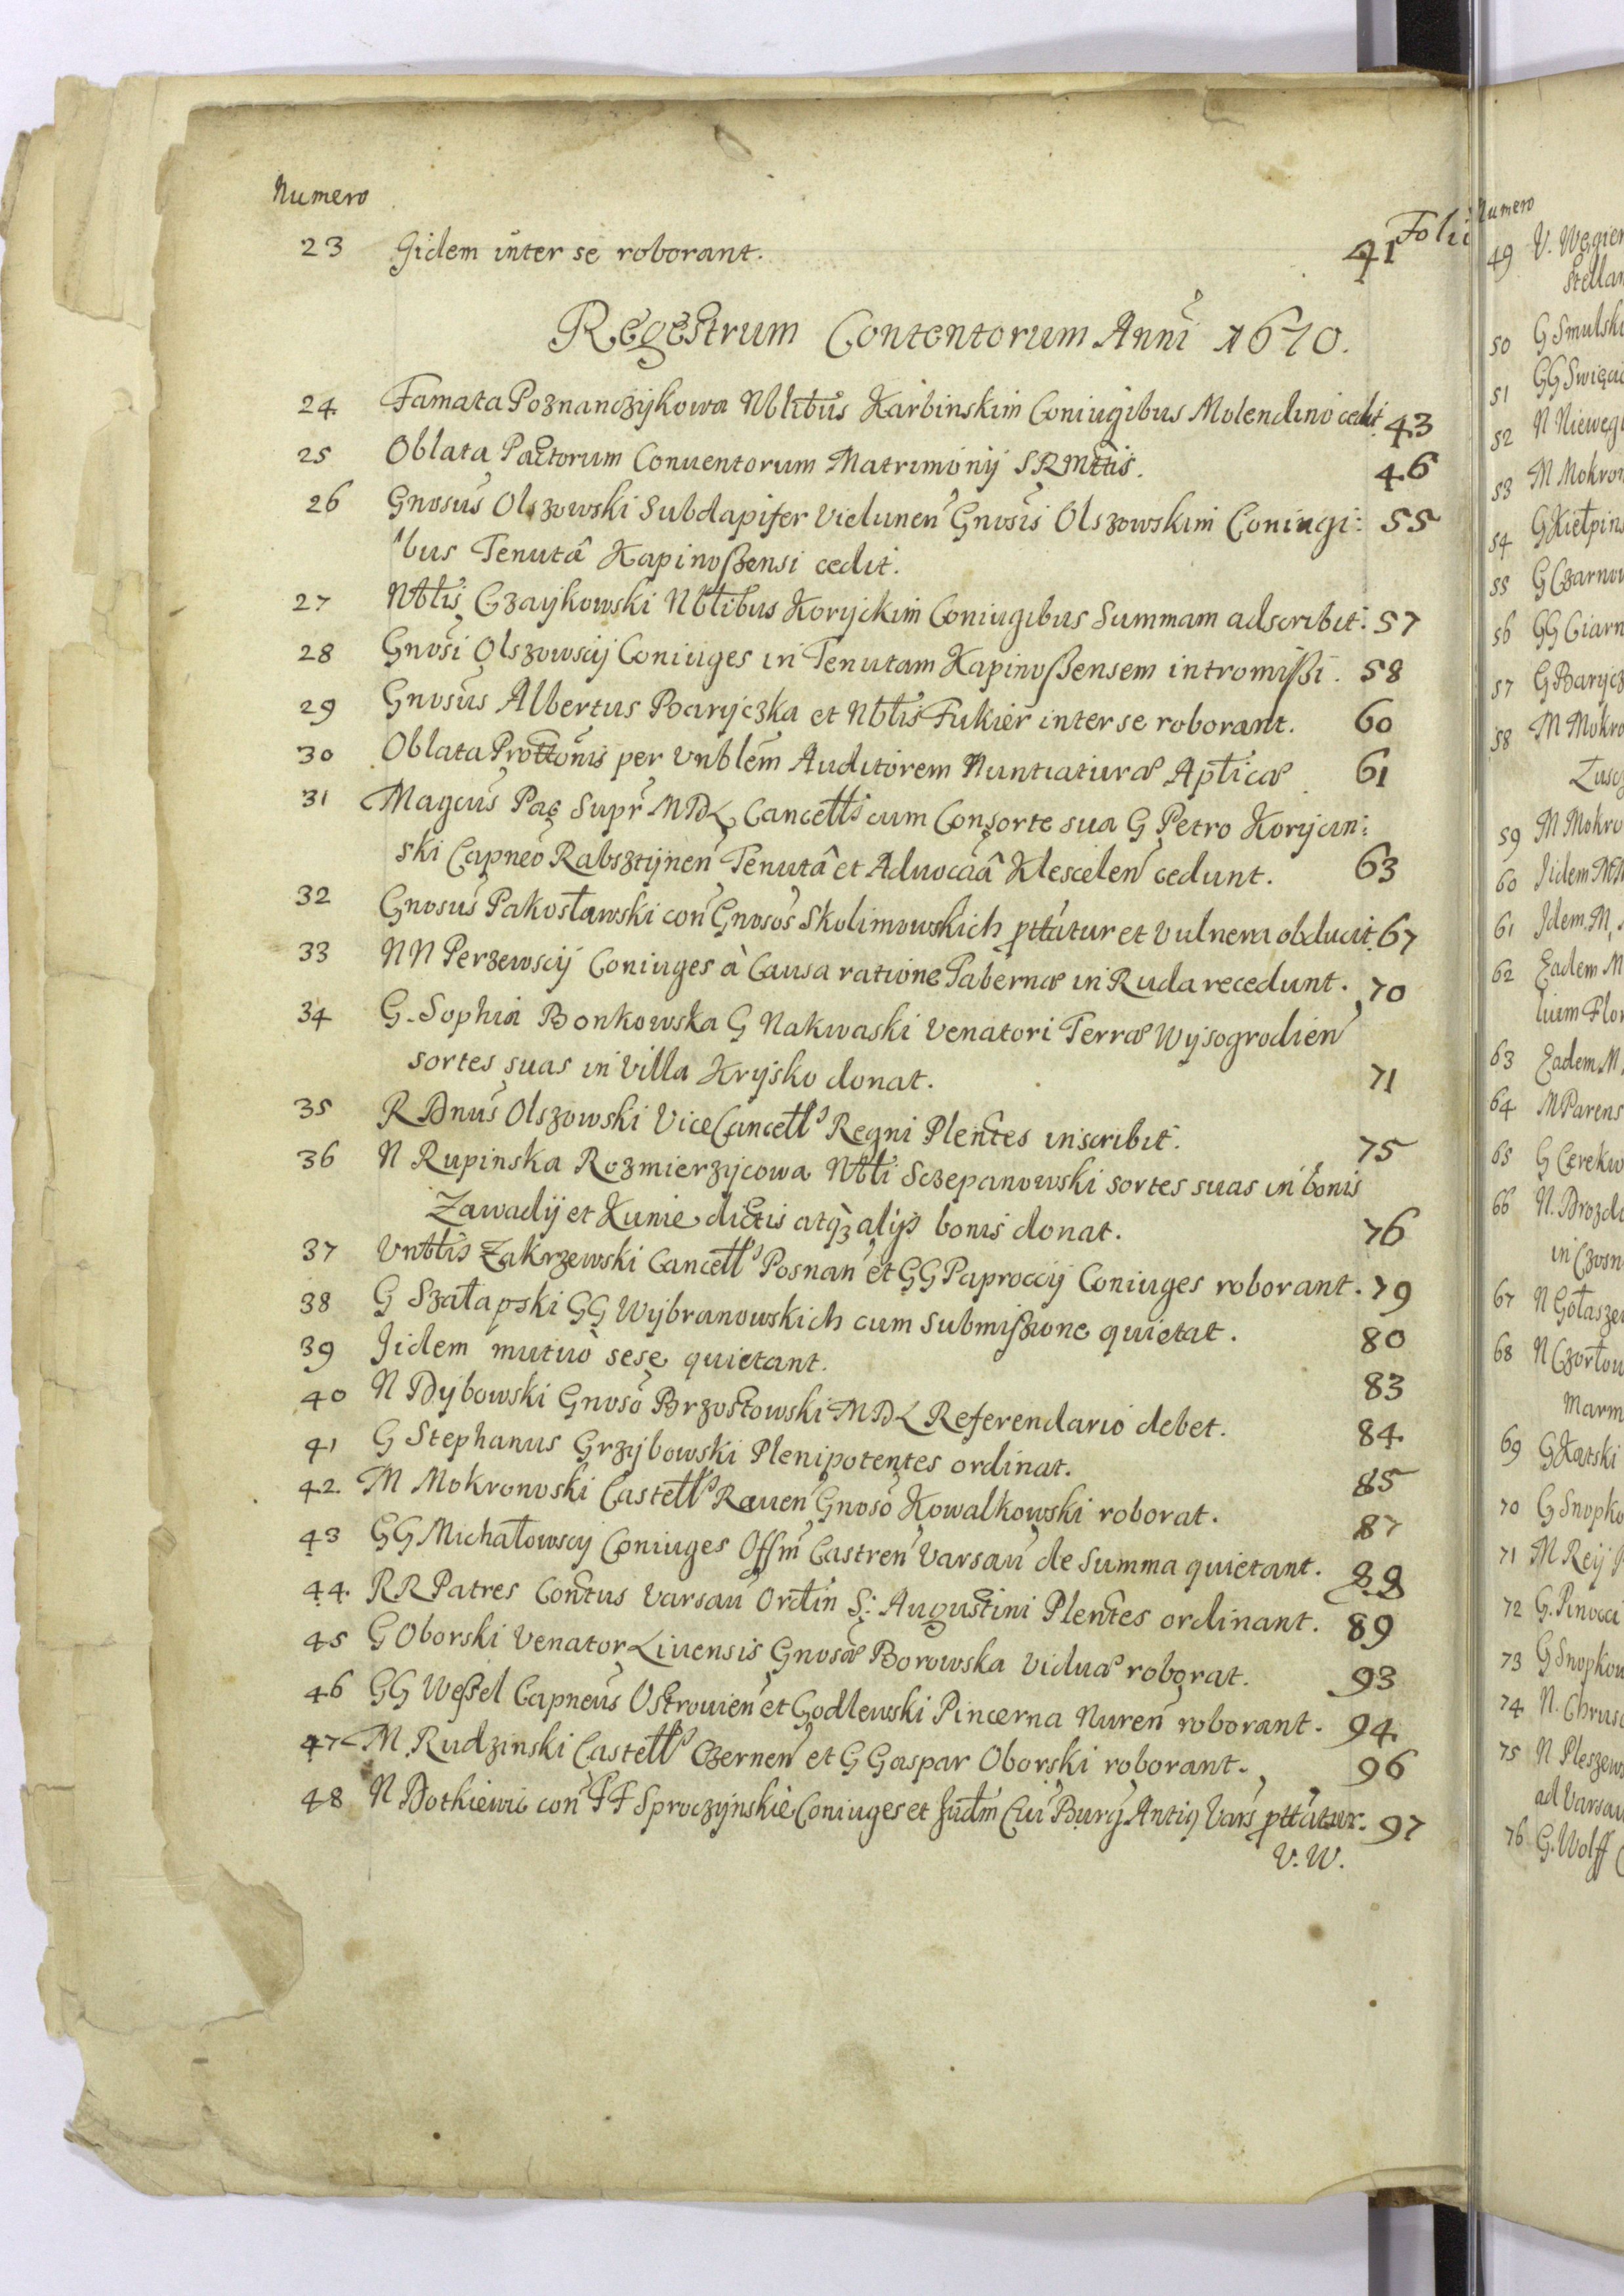 Numero
Folii
23 Iidem inter se roborant. 41
Regestrum Contentorum Anni 1670.
24 Famata Poznanczykowa Nbltibus Karbinskim Coniugibus Molendino cedit. 43
25 Oblata Pactorum Conuentorum Matrimonij SRMttis. 46
26 Gnosus Olszowski Subdapifer Vielunen Gnosis Olszowskim Coniugi: 55
bus Tenutâ Kapinoßensi cedit.
27 Nbtlis Czaykowski Nbtlibus Koryckim Coniugibus Summam adscribit. 57
28 Gnosi Olszowscy Coniuges in Tenutam Kapinoßensem intromißi. 58
29 Gnosus Albertus Baryczka et Nbtlis Fukier inter se roborant. 60
30 Oblata Prottonis per Vnblem Auditorem Nuntiaturæ Apticæ 61
31 Magcus Pac Supr MDL Cancells cum Consorte sua G Petro Korycin:
ski Capneo Rabsztynen Tenutâ et Aduocaâ Klescelen cedunt. 63
32 Gnosus Pakosławski con Gnosos Skolimowskich pttatur et Vulnera obducit. 67
33 NN Perzewscy Coniuges à Causa ratione Tabernæ in Ruda recedunt. 70
34 G. Sophia Bonkowska G Nakwaski Venatori Terræ Wysogrodien
sortes suas in Villa Krysko donat. 71
35 R Dnus Olszowski ViceCancells Regni Plentes inscribit. 75
36 N Rupinska Rozmierzycowa Nbtli Sczepanowski sortes suas in bonis
Zawady et Kunie dictis atqz alijs bonis donat. 76
37 Vnbtlis Zakrzewski Cancells Posnan et GG Paproccy Coniuges roborant. 79
38 G Szałapski GG Wybranowskich cum Submißione quietat. 80
39 Iidem mutuò sese quietant. 83
40 N Dybowski Gnoso Brzostowski MDL Referendario debet. 84
41 G Stephanus Grzybowski Plenipotentes ordinat. 85
42. M Mokronoski Castells Rauen Gnoso Kowalkowski roborat. 87
43 GG Michałowscy Coniuges Offm Castren Varsau de Summa quietant. 88
44. RR Patres Contus Varsau Ordin S: Augustini Plentes ordinant. 89
45 G Oborski Venator Liuensis Gnosæ Borowska Viduæ roborat. 93
46 GG Weßel Capneus Ostrouien et Godlewski Pincerna Nuren roborant. 94
47 M Rudzinski Castells Czernen et G Gaspar Oborski roborant. 96
48 N Dotkiewic con FF Sproczynskie Coniuges et Iudm Cui Burg Antiq Vars pttatur. 97
V. W.
Numero
49 V. Węgier
Stella
50 G Smulsk
51 GG Swięc
52 N Niewęg
53 M Mokron
54 G Kiełpins
55 G Czarno
56 GG Ciarn
57 G Barycz
58 M Mokro
59 M Mokro
60 Iidem
61 Idem M
62 Eadem M
63 Eadem M
64 M Parens
65 G Cerekw
66 N. Drozd
in Czosn
67 N Gołaszew
68 N Czortow
Marm
69 G Kątski
70 G Snopko
71 M Rey
72 G. Pinocci
73 G Snopkow
74 N. Chrusc
75 N Pleszew
ad Varsau
76 G. Wolff